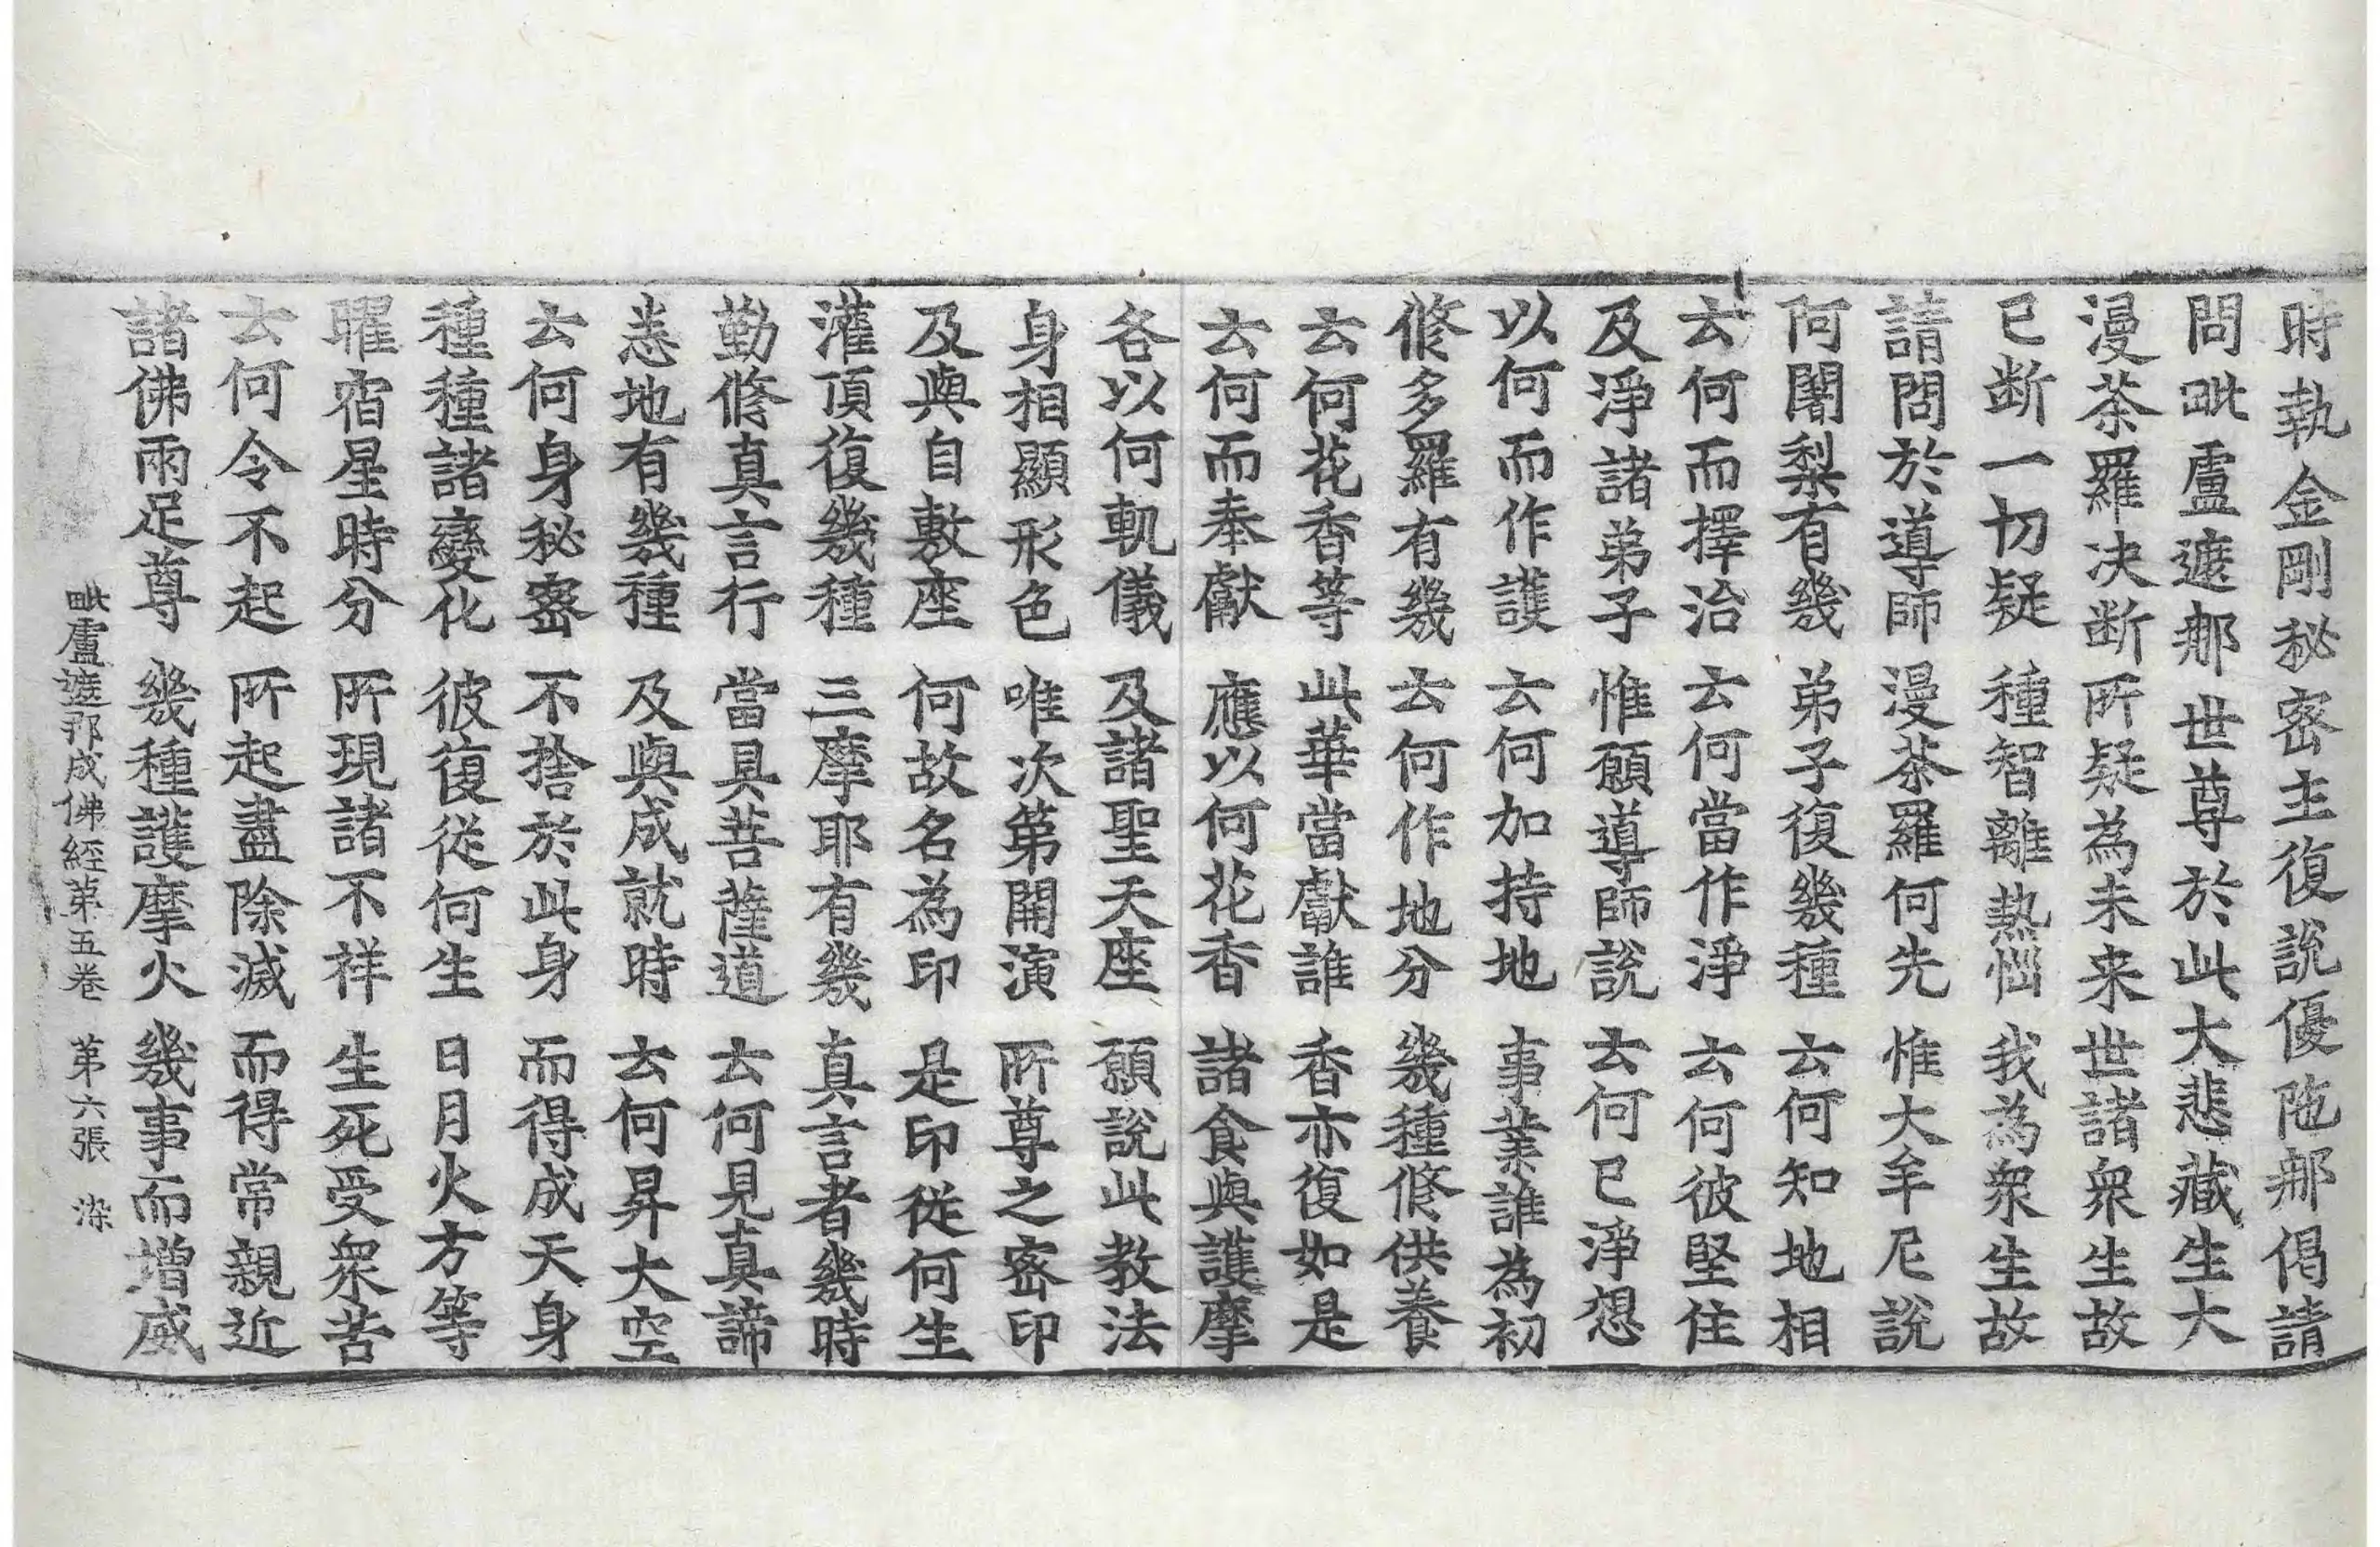 時執金剛秘密主復說優陁那偈請
問毗盧遮那世尊於此大悲藏生大
漫荼羅决断所疑為未来世諸衆生故
已断一切疑　種智離熱惱　我為衆生故
請問於導師　漫荼羅何先　惟大牟尼說
阿闍梨有幾　弟子復幾種　云何知地相
云何而擇治　云何當作淨　云何彼堅住
及淨諸弟子　惟願導師說　云何已淨想
以何而作護　云何加持地　事業誰為初
修多羅有幾　云何作地分　幾種修供養
云何花香等　此華當獻誰　香亦復如是
云何而奉獻　應以何花香　諸食與護摩
各以何軌儀　及諸聖天座　願說此教法
身相顯形色　唯次第開演　所尊之密印
及與自敷座　何故名為印　是印從何生
灌頂復幾種　三摩耶有幾　真言者幾時
勤修真言行　當具菩薩道　云何見真諦
悉地有幾種　及與成就時　云何昇大空
云何身秘密　不捨於此身　而得成天身
種種諸變化　彼復從何生　日月火方等
曜宿星時分　所現諸不祥　生死受衆苦
云何令不起　所起盡除滅　而得常親近
諸佛兩足尊　幾種護摩火　幾事而增威
毗盧遮那成佛經第五卷　第六張　染